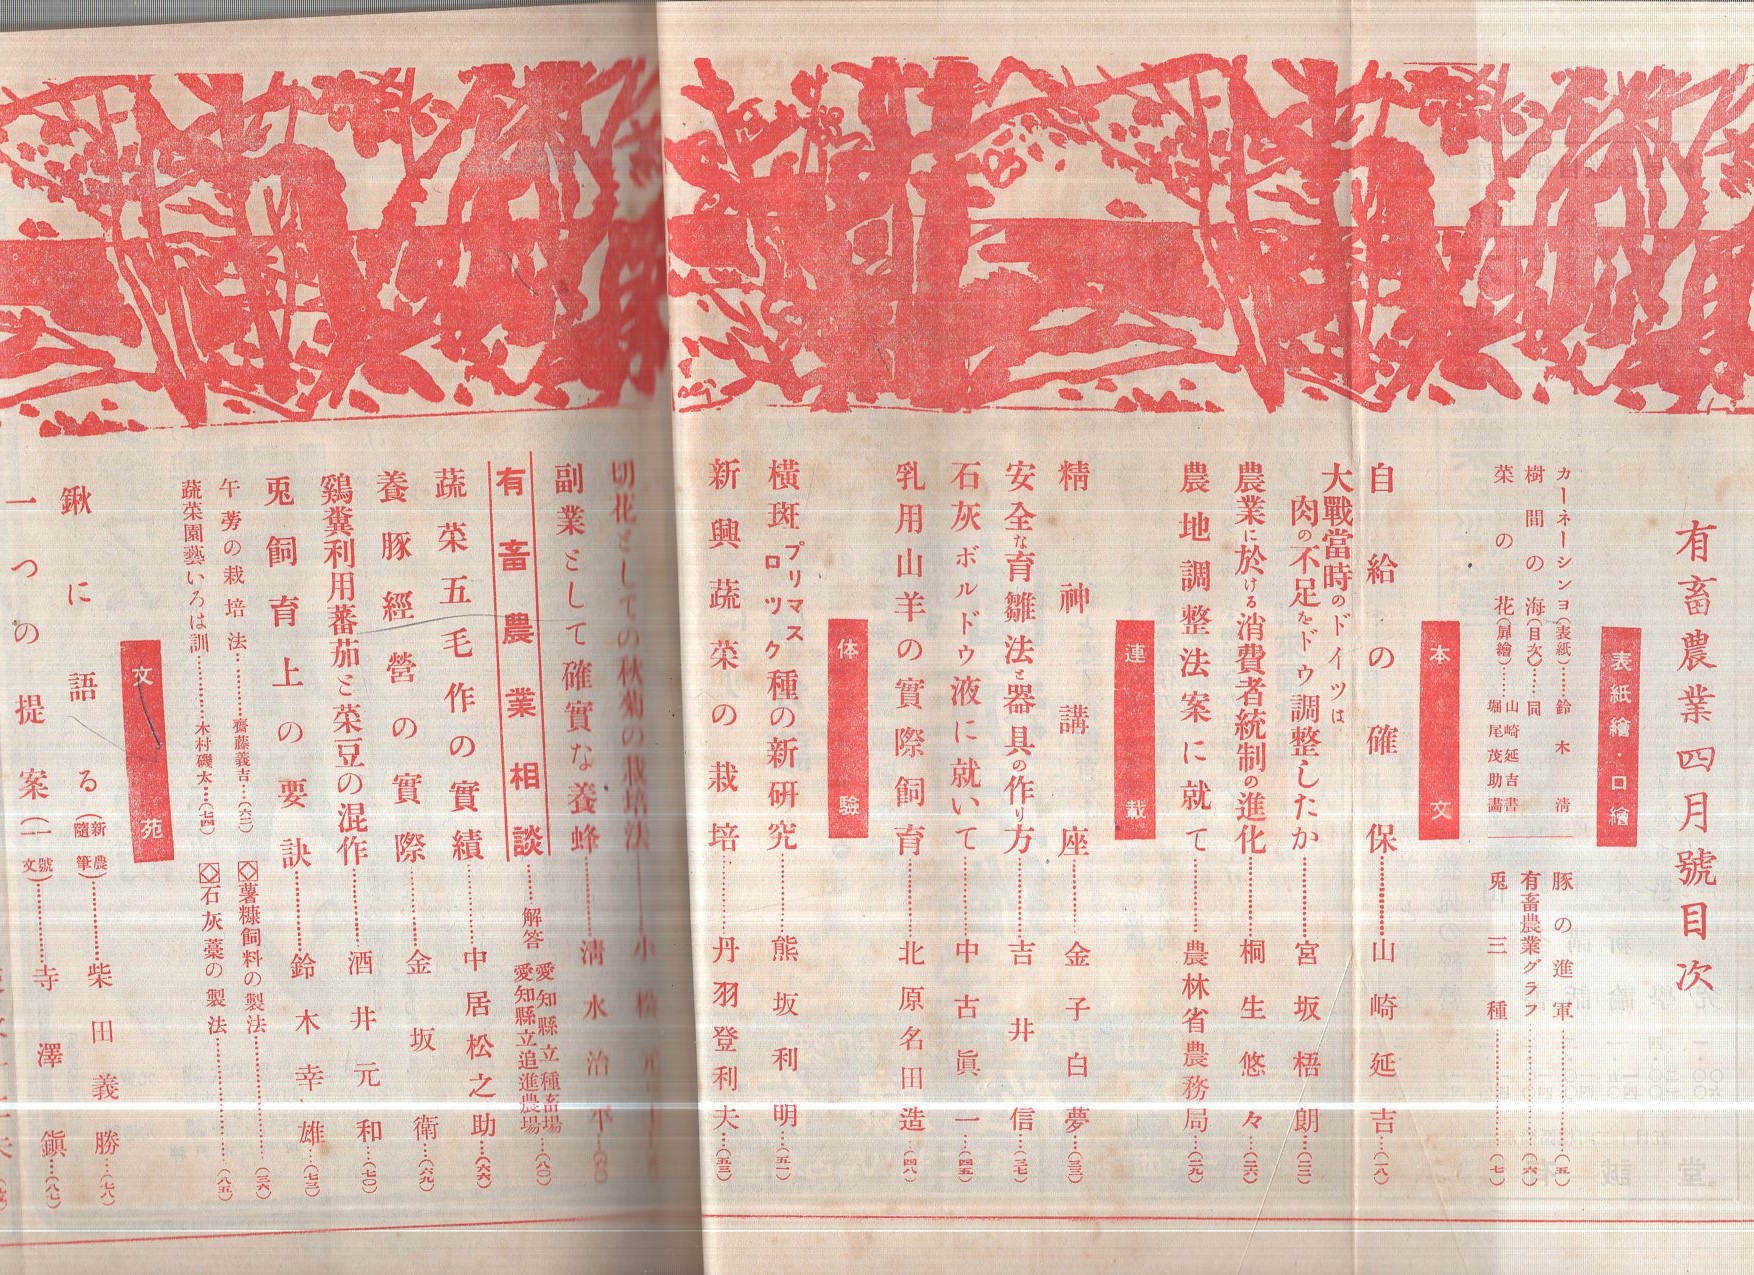 有畜農業四月號目次
表紙繪・口繪
カーネーシンヨ(表紙)……鈴木淸
樹間の海(目次)……同
菜の花(扉繪)……山崎延吉書 堀尾茂助畵
豚の進軍……(五)
有畜農業グラフ……(六)
兎三種……(七)
本文
自給の確保……山崎延吉…(一八)
大戰當時のドイツは
肉の不足をドウ調整したか……宮坂梧朗…(二二)
農業に於ける消費者統制の進化……桐生悠々…(二六)
農地調整法案に就て……農林省農務局…(二九)
連載
精神講座……金子白夢…(三三)
安全な育雛法と器具の作り方……吉井信…(三七)
石灰ボルドウ液に就いて……中古眞一…(四五)
乳用山羊の實際飼育……北原名田造…(四八)
体驗
橫斑プリマスロツク種の新硏究……熊坂利明…(五一)
新興蔬菜の栽培……丹羽登利夫…(五三)
切花としての秋菊の栽培法……小松
副業として確實な養蜂……淸水治平
有畜農業相談……解答 愛知縣立種畜場 愛知縣立追進農場…(八〇)
蔬菜五毛作の實績……中居松之助…(六六)
養豚經營の實際……金坂衛…(六九)
鷄糞利用蕃茄と菜豆の混作……酒井元和…(七〇)
兎飼育上の要訣……鈴木幸雄…(七三)
午蒡の栽培法……齋藤義吉…(六二)
◇薯糠飼料の製法……(三六)
蔬菜園藝いろは訓……木村磯太…(七四)
◇石灰藁の製法……(八五)
文苑
鍬に語る(新農隨筆)……柴田義勝…(七八)
一つの提案(一號文)……寺澤鎭…(八七)